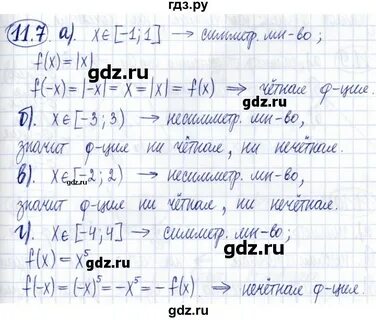 11.7 а). x∈[-1;1] → симметр. мн-во;
f(x)=|x|
f(-x)=|-x|=x=|x|=f(x) ⇒ чётная ф-ция.
б). x∈[-3;3) → несимметр. мн-во,
значит ф-ция ни чётная, ни нечётная.
в). x∈[-2;2) → несимметр. мн-во,
значит ф-ция ни чётная, ни нечётная.
г). x∈[-4;4] → симметр. мн-во;
f(x)=x⁵
f(-x)=(-x)⁵=-x⁵=-f(x) ⇒ нечётная ф-ция.
gdz.ru
gdz.ru
gdz.ru
gdz.ru
gdz.ru
gdz.ru